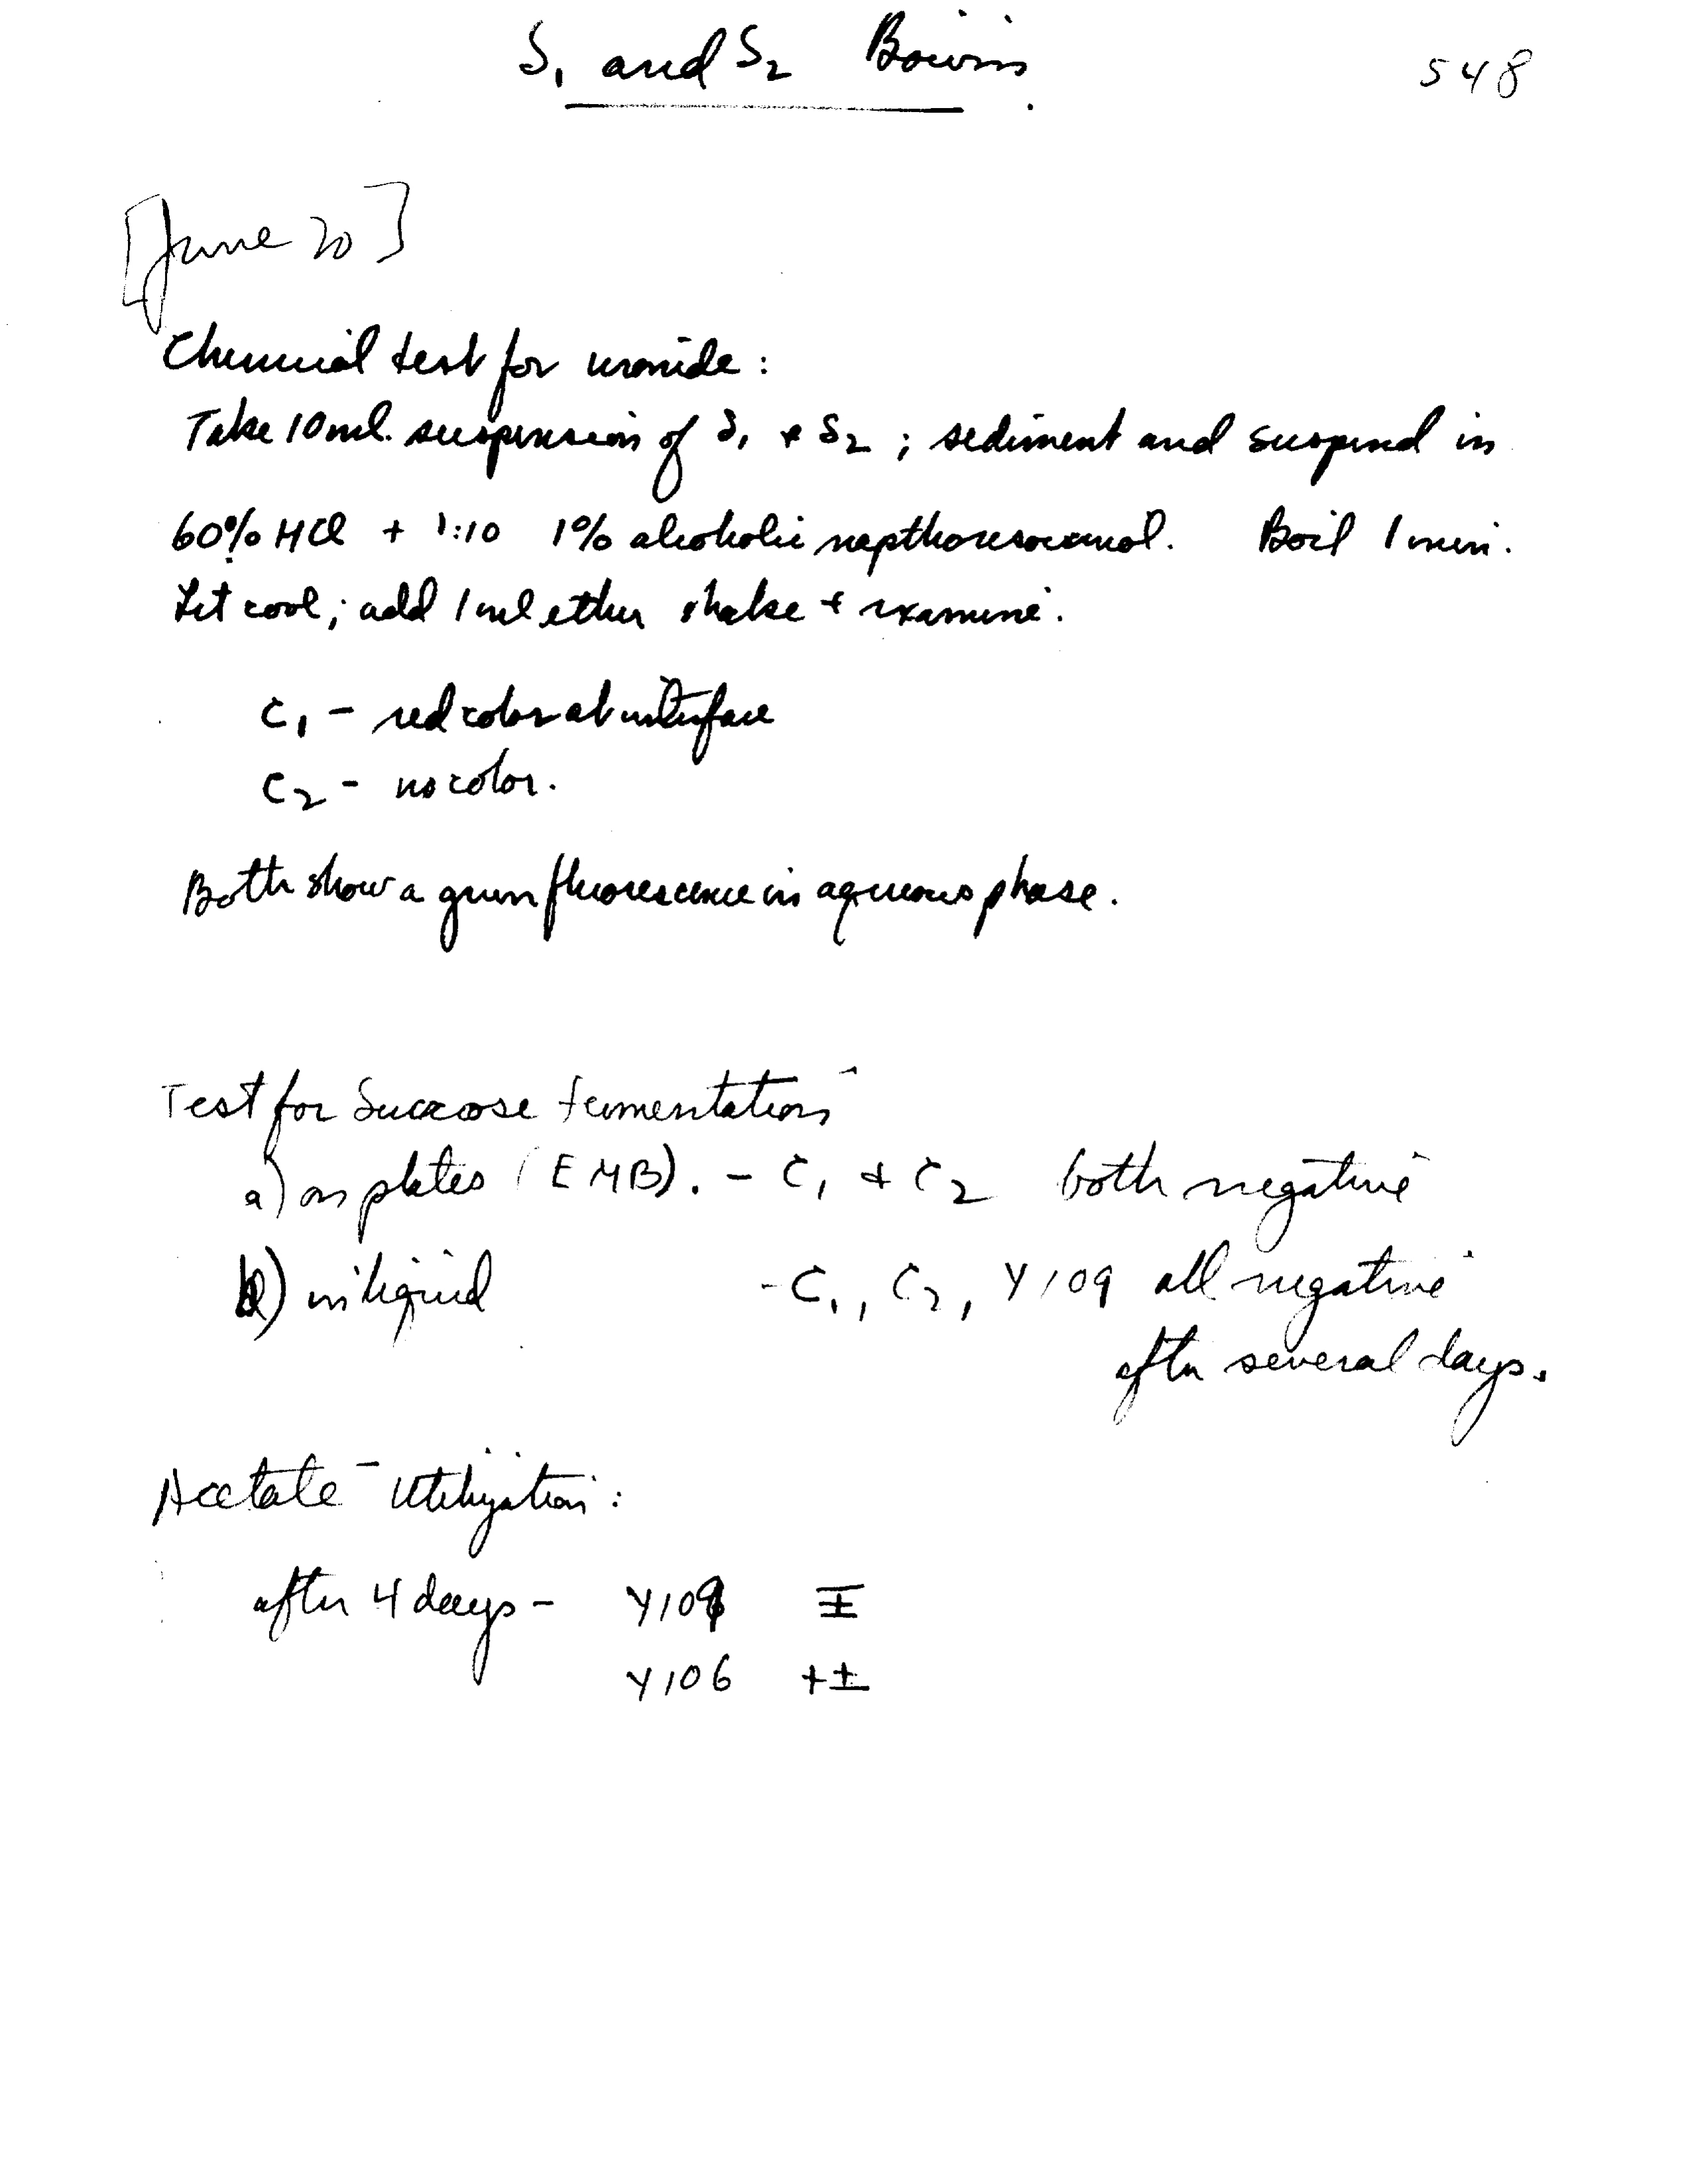 S₁ and S₂ Bowin
548
[June 20]
Chemical test for uronide:
Take 10 ml. suspension of S₁ + S₂; sediment and suspend in
60% HCl + 1:10 1% alcoholic napthoresorcinol. Boil 1 min.
Let cool; add 1 ml ether shake + examine.
C₁ - red color at interface
C₂ - no color.
Both show a green fluorescence in aqueous phase.
Test for Sucrose fermentation
a) on plates (EMB). - C₁ + C₂ both negative
b) in liquid - C₁, C₂, Y109 all negative
after several days.
Acetate - Utilization:
after 4 days - Y109 ±
Y106 +±